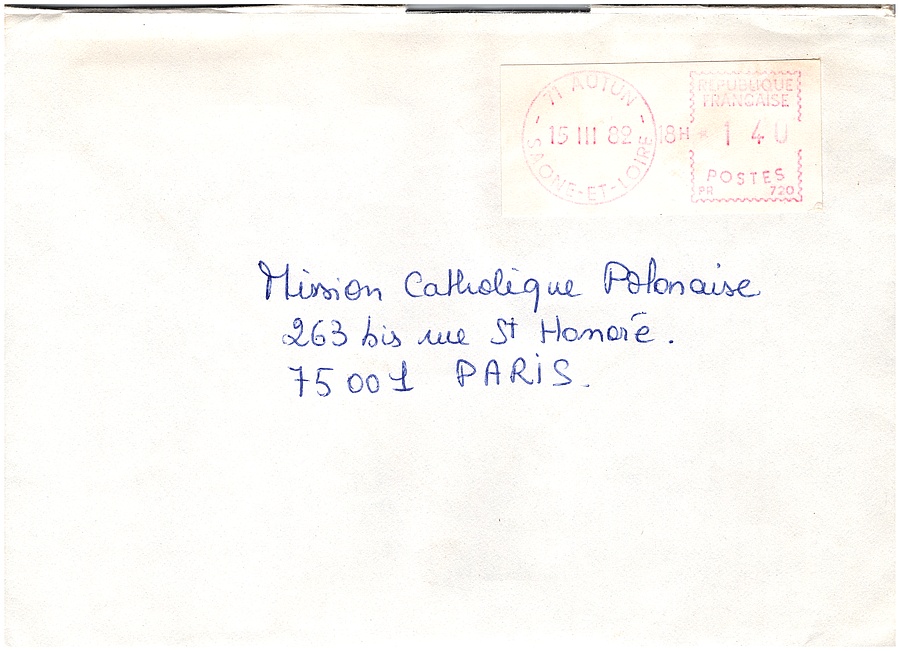 71 AUTUN
15 III 82 18H
SAONE-ET-LOIRE
REPUBLIQUE
FRANCAISE
1 40
POSTES
PR 720
Mission Catholique Polonaise
263 bis rue St Honoré.
75001 PARIS.